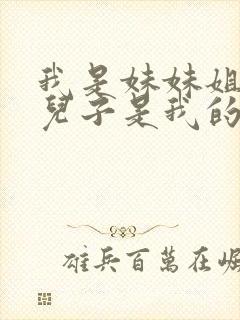 我是妹妹姐
兒子是我的
雄兵百萬在崛